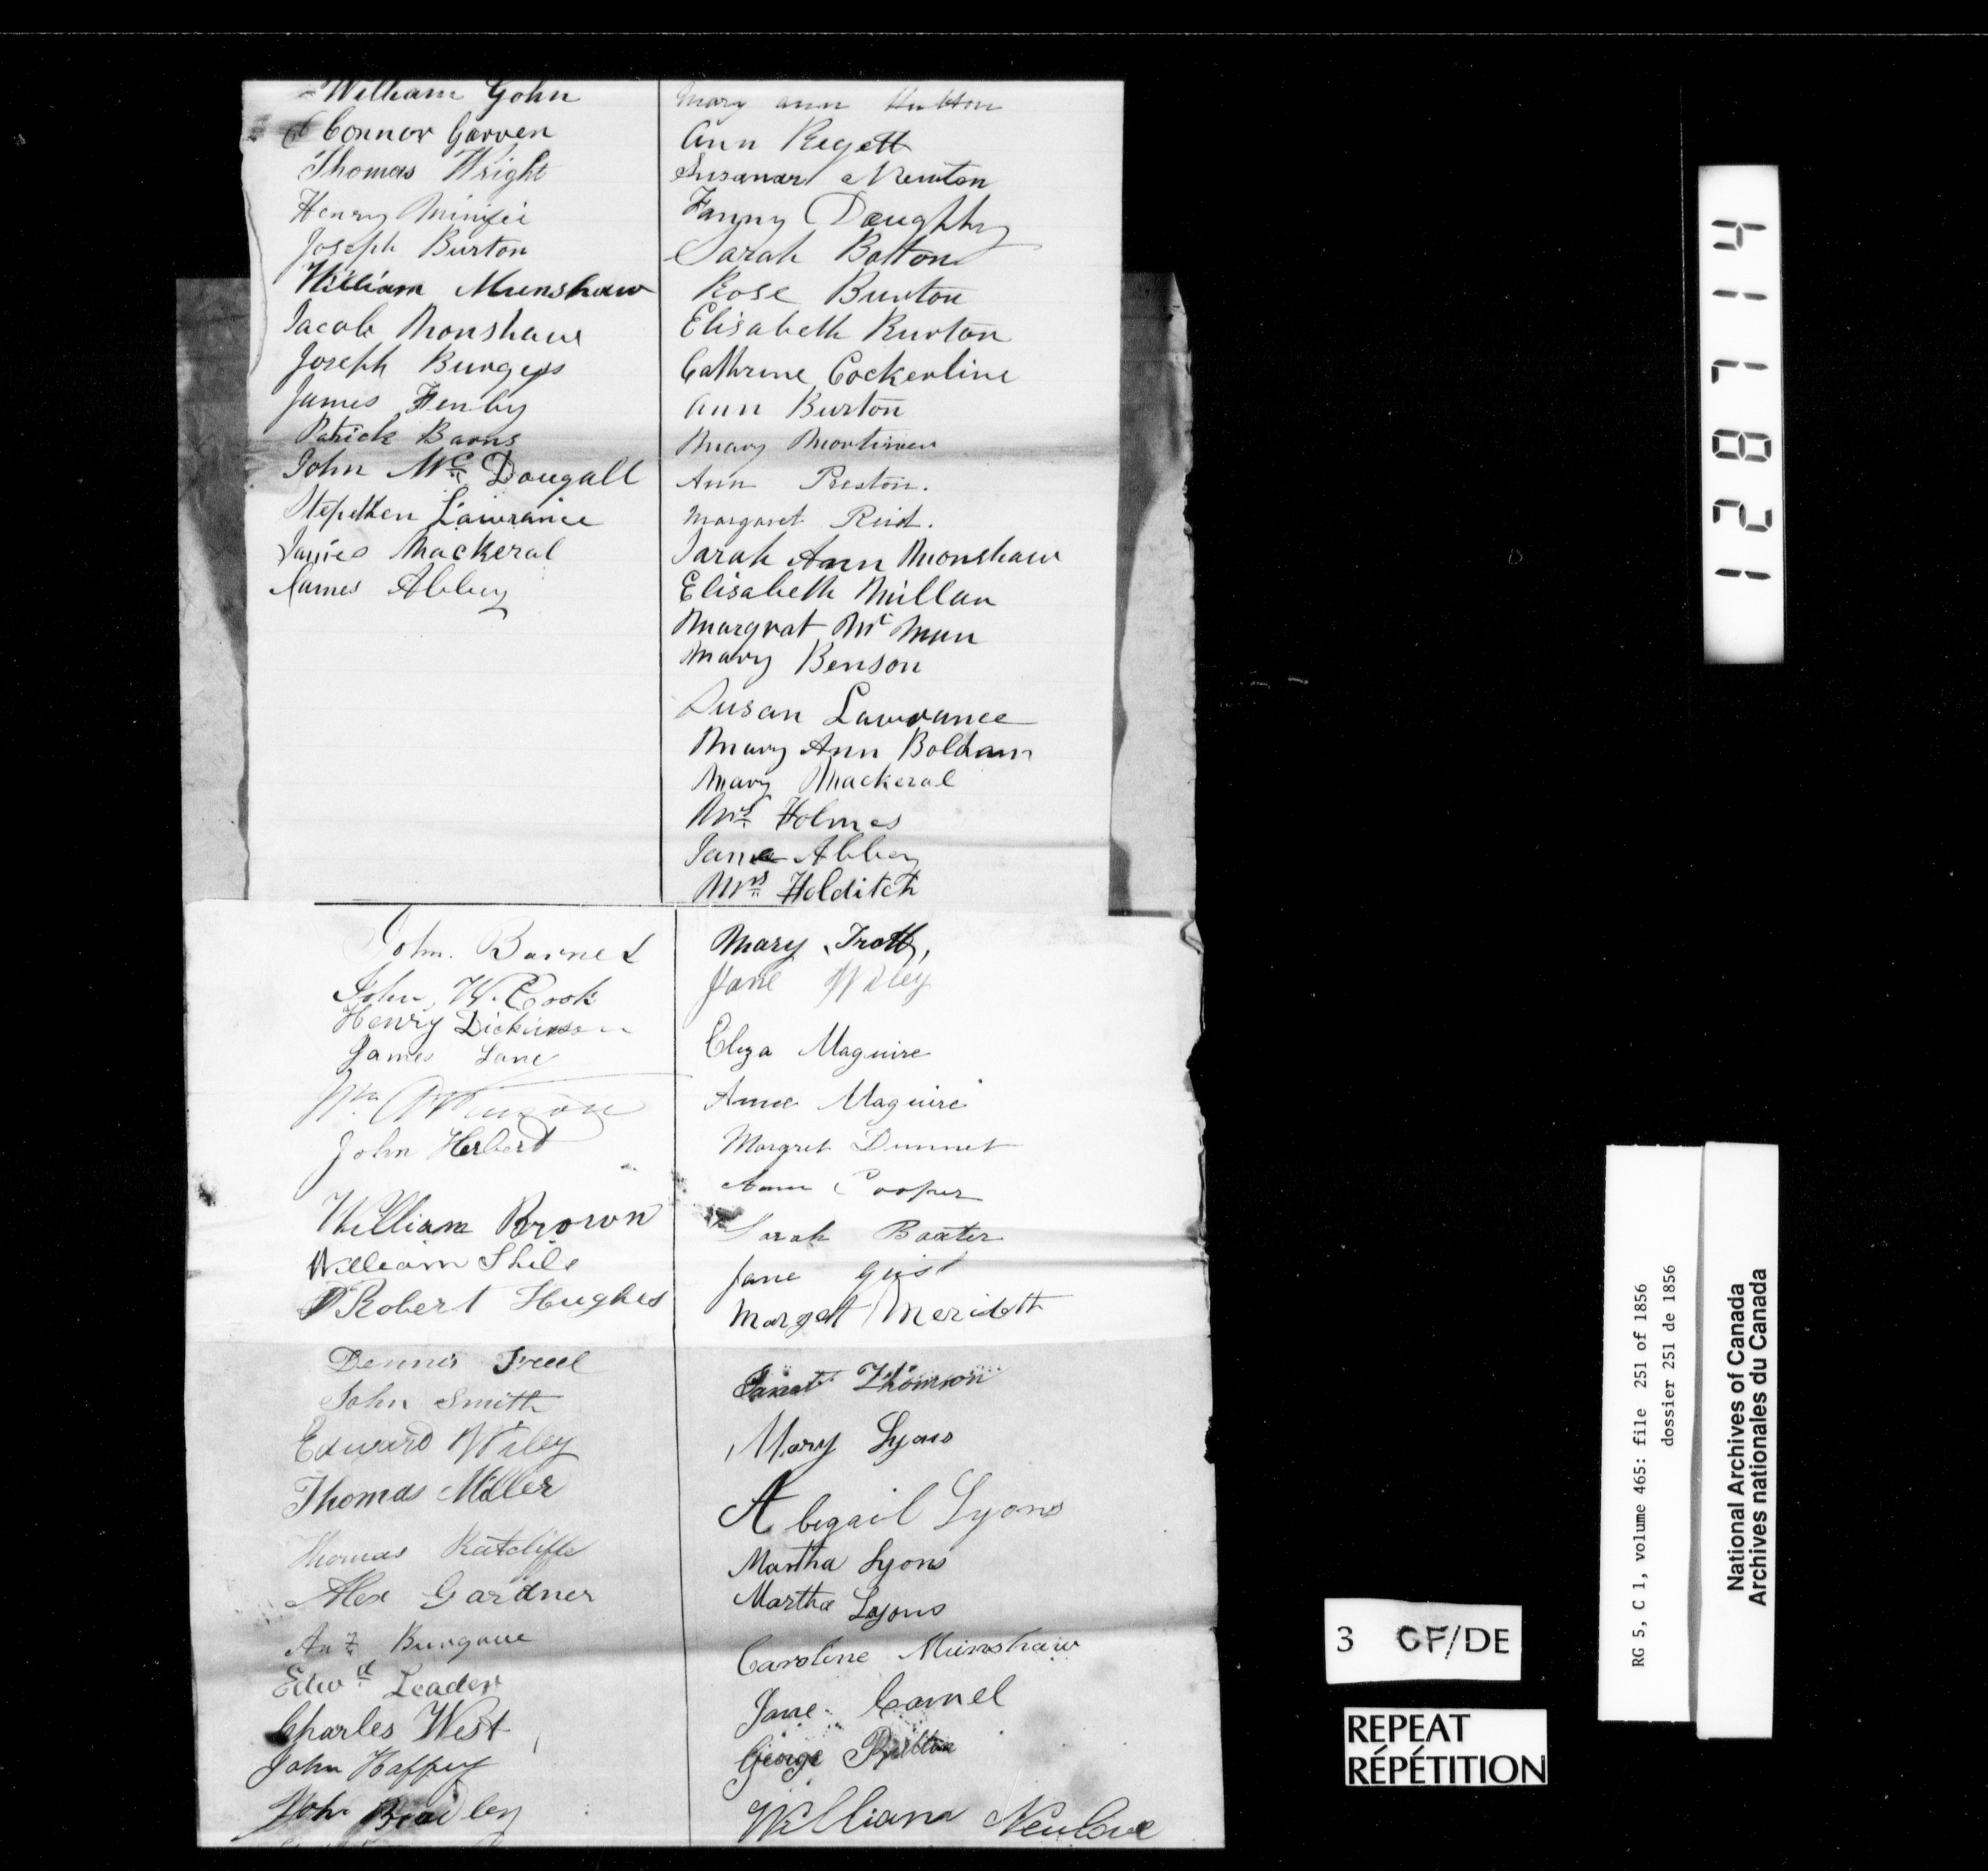 William Gohn
Connor Garven
Thomas Wright
Henry
Joseph Burton
William Munshaw
Jacob Monshaw
Joseph Burgess
James Fenby
Patrick Barns
John Mc Dougall
Stepehen Lawrance
James Mackeral
James Abbey
Mary ann Hutton
Ann Pegett
Susanar Newton
Fanny Doughty
Sarah Bolton
Rose Burton
Elisabeth Burton
Cathrine Cockerline
Ann Burton
Mary Mortimer
Ann Preston.
Margaret Reid.
Sarah Ann Monshaw
Elisabeth Millar
Margrat Mc Mun
Mary Benson
Susan Lawrance
Mary Ann Boldham
Mary Mackeral
Mrs Holmes
Jane Abbey
Mrs Holditch
John. Barnes
John, W. Cook
Henry Dickinson
James Lane
Wm
John Herbert
William Brown
William Shils
Robert Hughes
Dennis Freel
John Smith
Edward Wiley
Thomas Miller
Thomas Ratcliffe
Alex Gardner
Burgoue
Edwd Leader
Charles West
John Haffey
John Bradley
Mary Trott,
Jane Wiley
Eliza Maguire
Anne Maguire
Margret Dunnet
Ann Cooper
Sarah Baxter
Jane Gist
Margat Merideth
Janat Thomson
Mary Lyons
Abegail Lyons
Martha Lyons
Martha Lyons
Caroline Munshaw
Jane Camel
George
William Newlove
128714
RG 5, C 1, volume 465: file 251 of 1856
dossier 251 de 1856
National Archives of Canada
Archives nationales du Canada
3 CF/DE
REPEAT
RÉPÉTITION